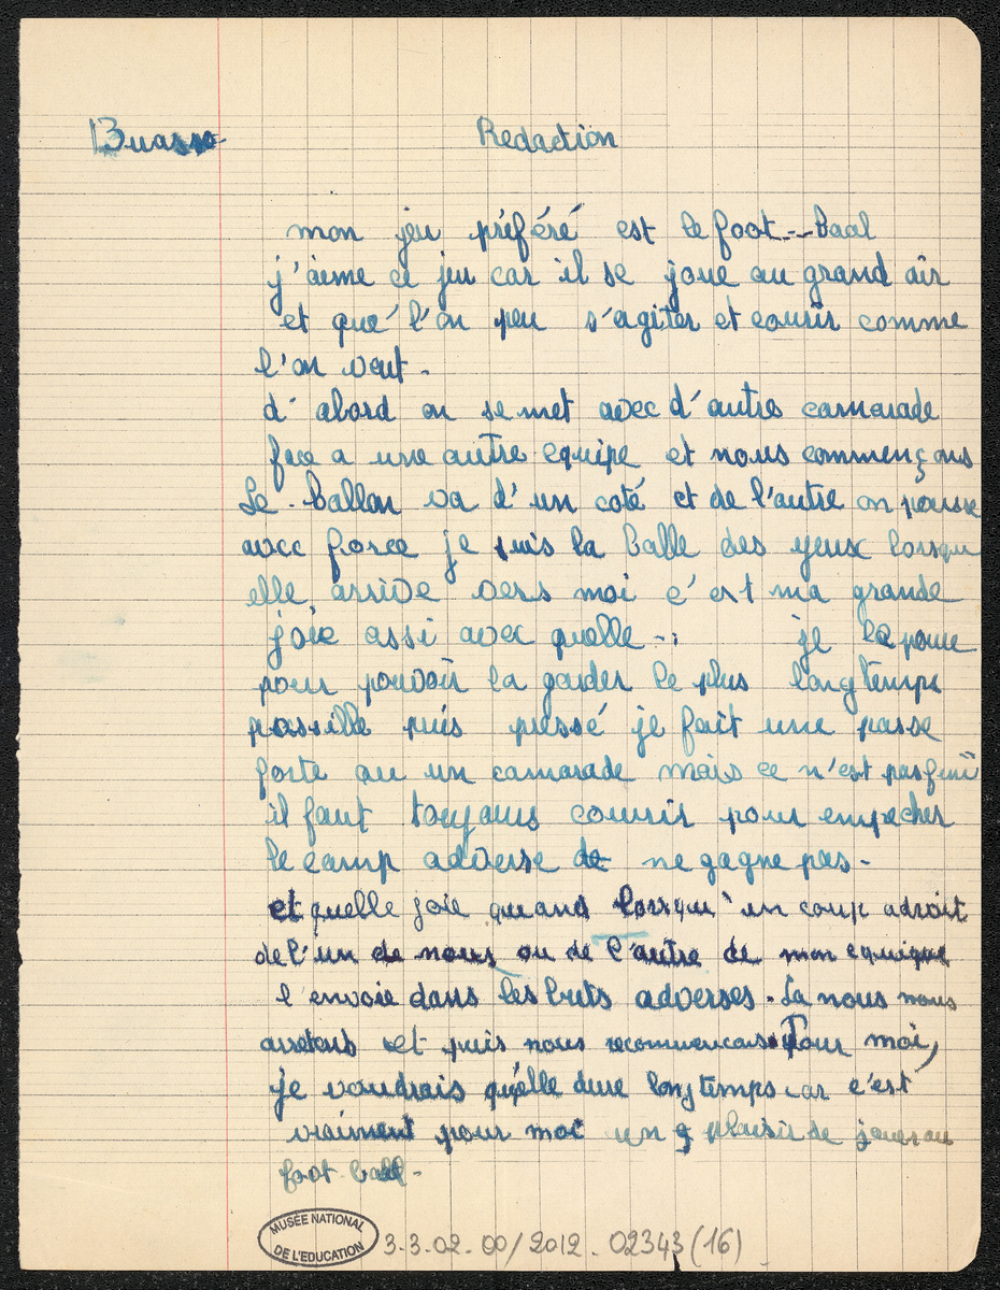 Buasso Redaction
mon jeu préféré est le foot--baal
j'aime ce jeu car il se joue au grand air
et que l'on peu s'agiter et courir comme
l'on veut.
d'abord on se met avec d'autres camarade
face a une autre equipe et nous commençons
Le ballon va d'un coté et de l'autre on pousse
avec force je suis la balle des yeux lorsqu
elle arrive vers moi c'est ma grande
joie assi avec quelle je la pousse
pour pouvoir la garder le plus longtemps
possible puis pressé je fait une passe
forte au un camarade mais ce n'est pas fini
il faut toujours courir pour empecher
le camp adverse de ne gagne pas.
et quelle joie quand lorsqu'un coup adroit
de l'un de nous ou de l'autre de mon equique
l'envoie dans les buts adverses. La nous nous
arretons et puis nous recommencons Pour moi,
je voudrais qu'elle dure longtemps car c'est
vraiment pour moi un g plaisir de jouer au
foot-ball.
MUSÉE NATIONAL
DE L'EDUCATION
3-3.02.00/2012.02343(16)